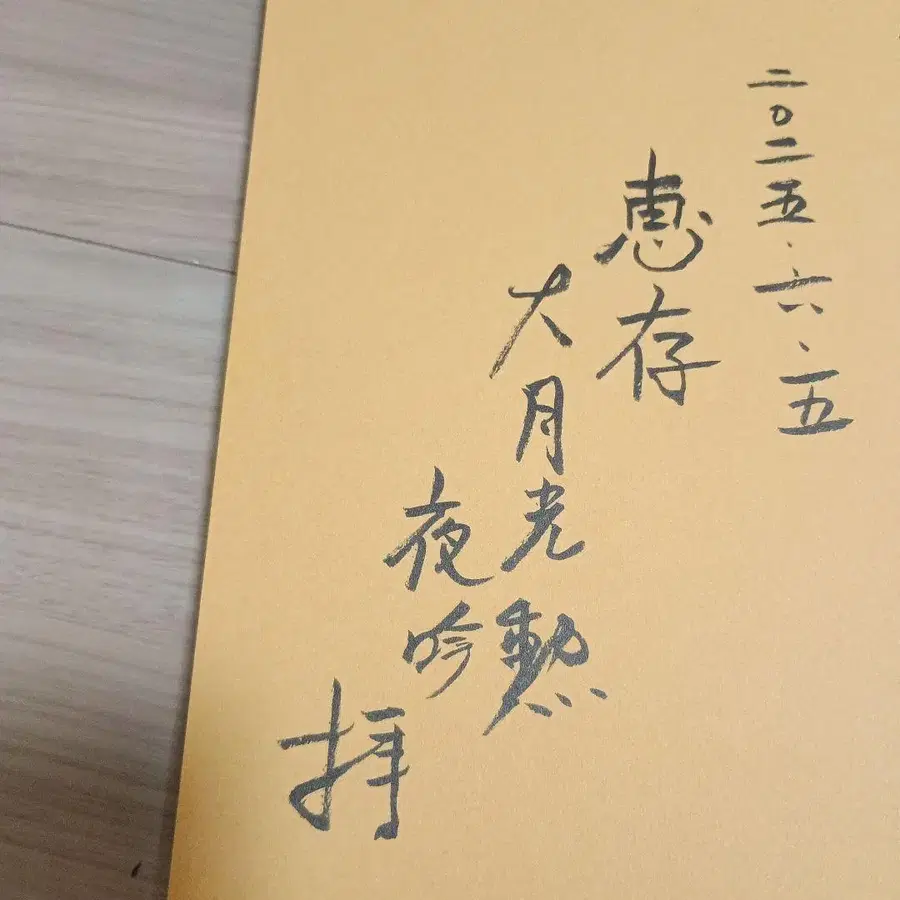 二〇二五.六.一五
惠存
大月光勲
夜吟
拝